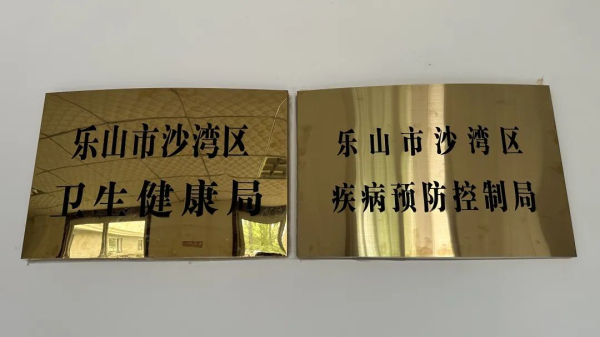 乐山市沙湾区
卫生健康局
乐山市沙湾区
疾病预防控制局